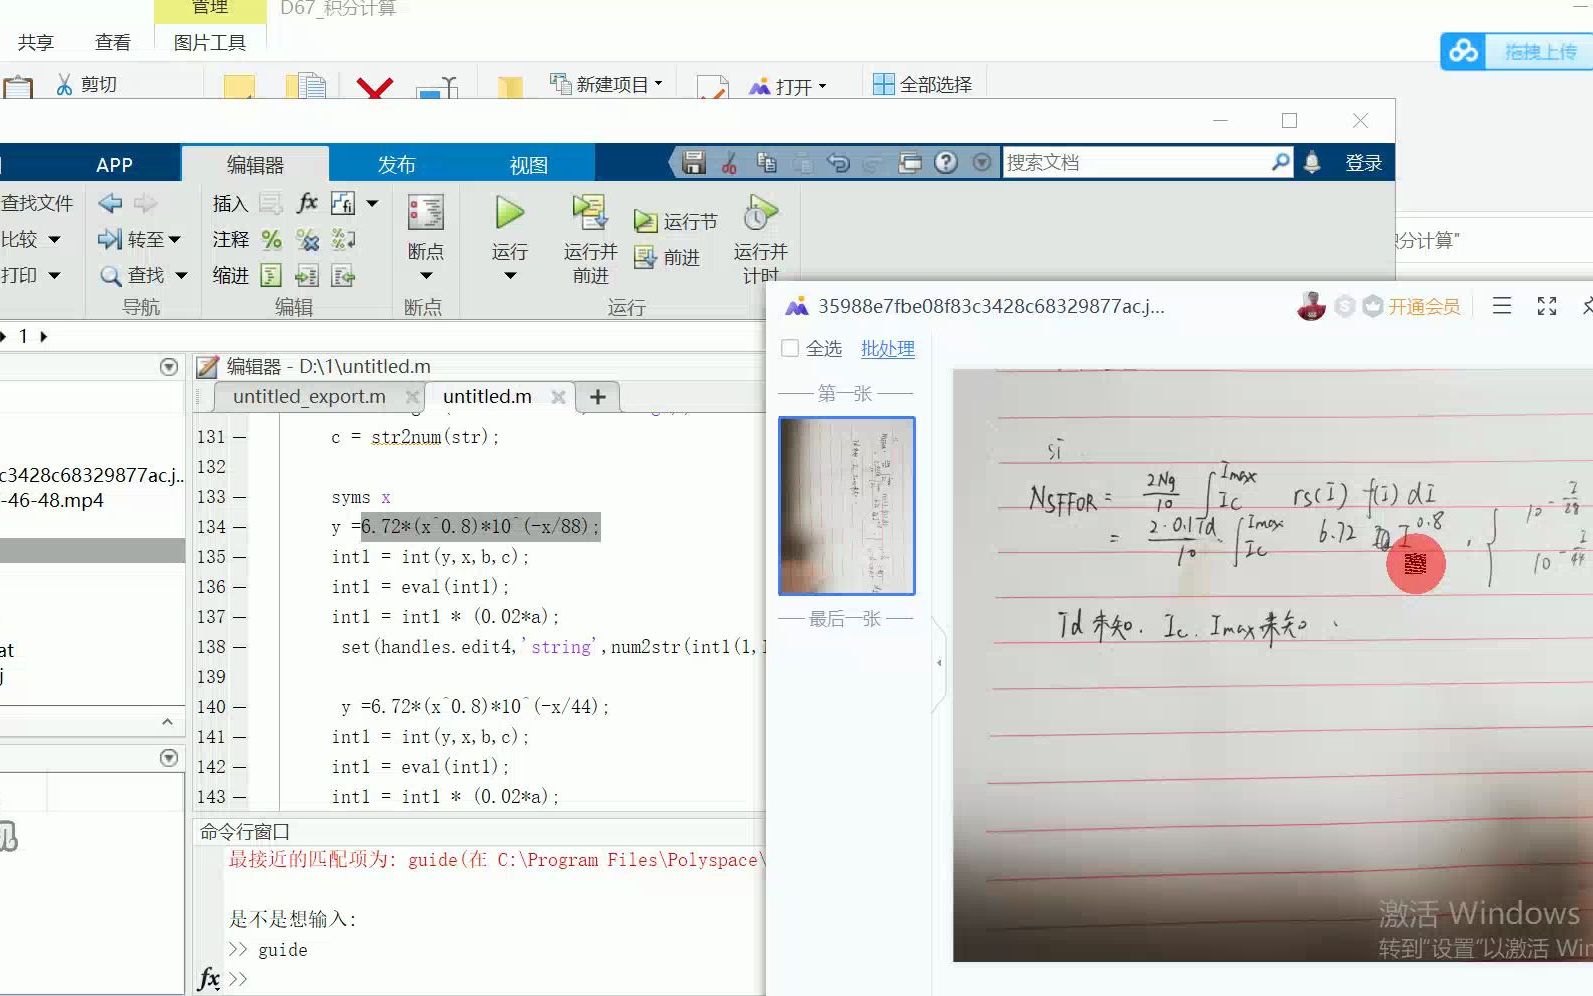 管理
D67_积分计算
共享
查看
图片工具
拖拽上传
剪切
新建项目
打开
全部选择
APP
编辑器
发布
视图
搜索文档
登录
查找文件
比较
打印
转至
查找
导航
插入
注释
缩进
编辑
断点
断点
运行
运行并
前进
运行节
前进
运行并
计时
运行
积分计算"
1
编辑器 - D:\1\untitled.m
untitled_export.m
untitled.m
131
c = str2num(str);
132
133
syms x
134
y =6.72*(x^0.8)*10^(-x/88);
135
int1 = int(y,x,b,c);
136
int1 = eval(int1);
137
int1 = int1 * (0.02*a);
138
set(handles.edit4,'string',num2str(int1(1,1
139
140
y =6.72*(x^0.8)*10^(-x/44);
141
int1 = int(y,x,b,c);
142
int1 = eval(int1);
143
int1 = int1 * (0.02*a);
c3428c68329877ac.j...
-46-48.mp4
at
j
命令行窗口
最接近的匹配项为: guide(在 C:\Program Files\Polyspace\
是不是想输入:
>> guide
fx >>
35988e7fbe08f83c3428c68329877ac.j...
开通会员
全选
批处理
第一张
最后一张
si
NSFFOR = 2Ng/10 ∫Ic Imax rs(I) f(I) dI
= 2·0.1Td/10 ∫Ic Imax 6.72 I^0.8 · { 10^-I/28
10^-I/44
Td 未知. Ic. Imax 未知.
激活 Windows
转到"设置"以激活 Win